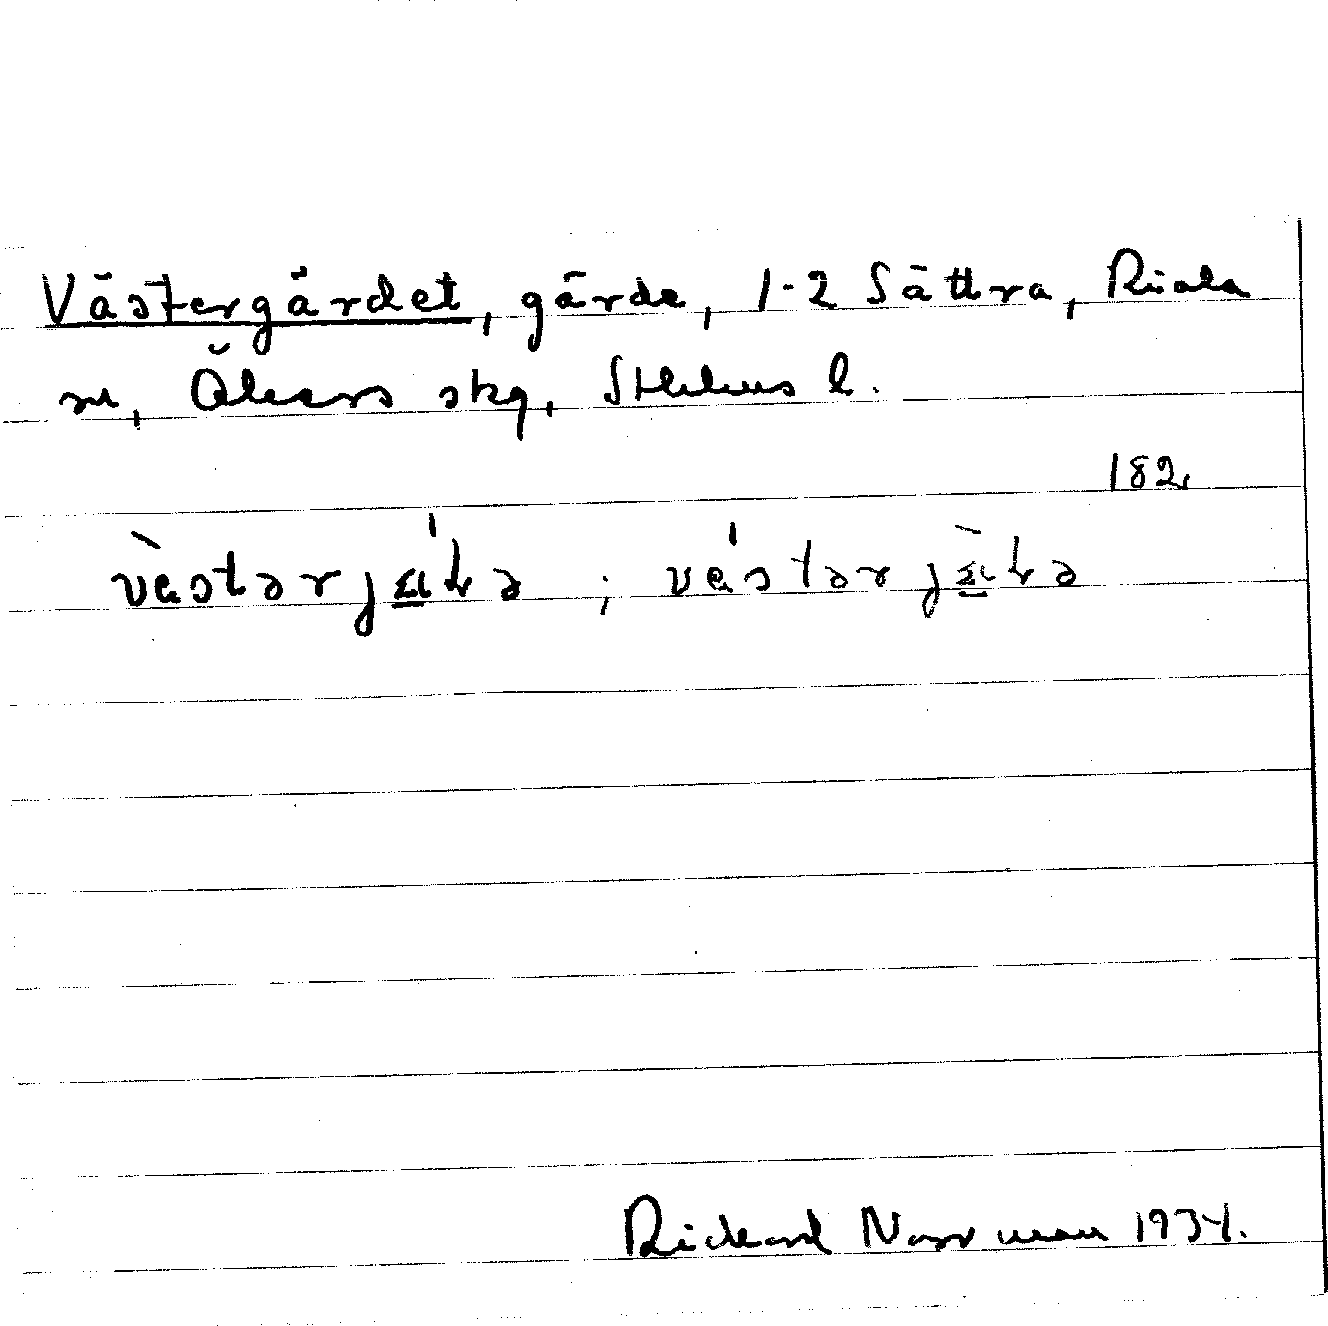 Västergärdet, gärde, 1-2 Sättra, Riala
sn, Åkers skg, Sthlms l.
182.
vèstərjæ̲'ɖə ; vè'stərjæ̲̀ɖə
Rickard Norrman 1934.